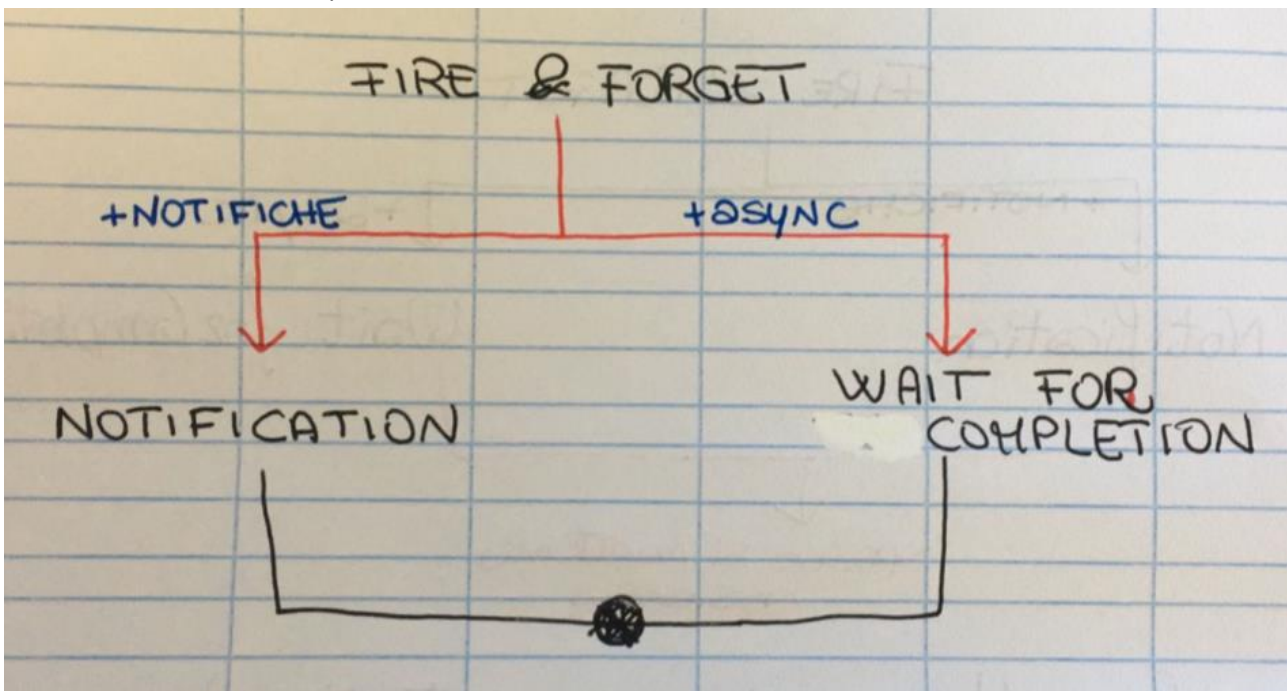 FIRE & FORGET
+NOTIFICHE +async
NOTIFICATION
WAIT FOR
COMPLETION